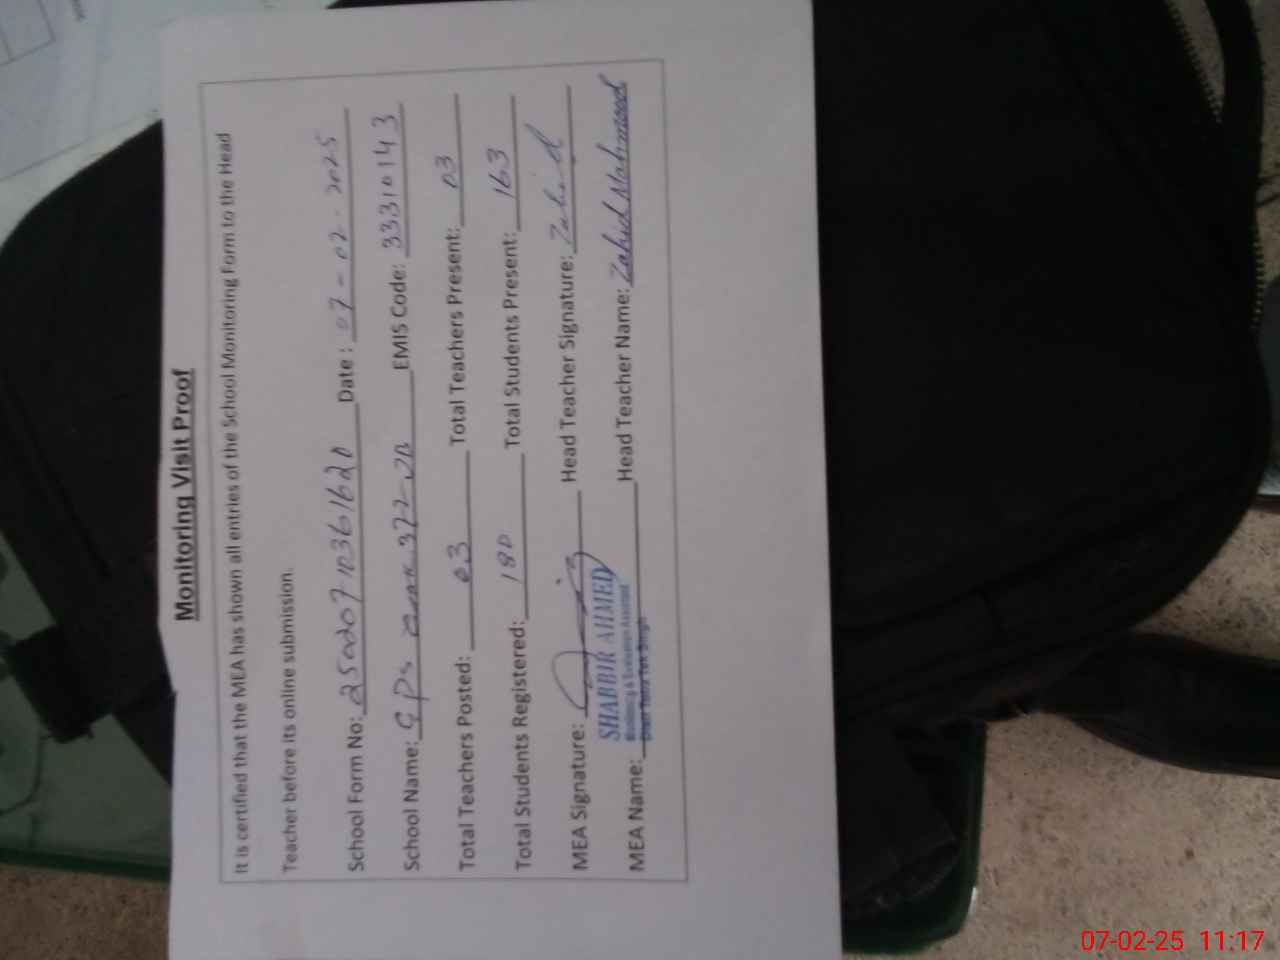 Monitoring Visit Proof
It is certified that the MEA has shown all entries of the School Monitoring Form to the Head
Teacher before its online submission.
School Form No: 25020710361620 Date: 07-02-2025
School Name: GPS 372-JB EMIS Code: 33310143
Total Teachers Posted: 03 Total Teachers Present: 03
Total Students Registered: 180 Total Students Present: 163
MEA Signature: Head Teacher Signature: Zahid
SHABBIR AHMED
Monitoring & Evaluation Assistant
MEA Name: Head Teacher Name: Zahid Mahmood
Distt Toba Tek Singh
07-02-25 11:17